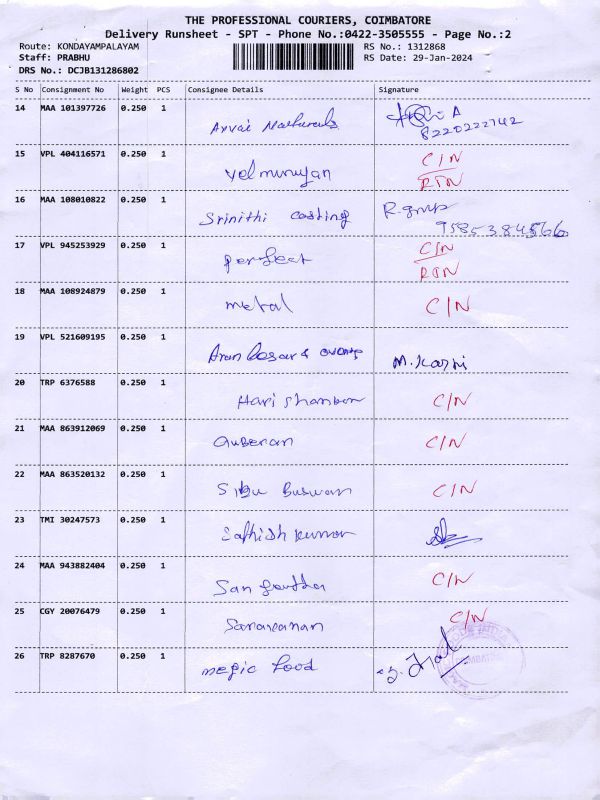 THE PROFESSIONAL COURIERS, COIMBATORE
Delivery Runsheet - SPT - Phone No.:0422-3505555 - Page No.:2
Route: KONDAYAMPALAYAM RS No.: 1312868
Staff: PRABHU RS Date: 29-Jan-2024
DRS No.: DCJB131286802
S No Consignment No Weight PCS Consignee Details Signature
14 MAA 101397726 0.250 1
8220222742
15 VPL 404116571 0.250 1 C/N
velmurugan RTN
16 MAA 108010822 0.250 1
Srinithi casting
17 VPL 945253929 0.250 1 C/N
perfect RTN
18 MAA 108924879 0.250 1
metal C/N
19 VPL 521609195 0.250 1
20 TRP 6376588 0.250 1
C/N
21 MAA 863912069 0.250 1
C/N
22 MAA 863520132 0.250 1
C/N
23 TMI 30247573 0.250 1
Sathish kumar
24 MAA 943882404 0.250 1 C/N
25 CGY 20076479 0.250 1 C/N
Saravanan
26 TRP 8287670 0.250 1
megic food